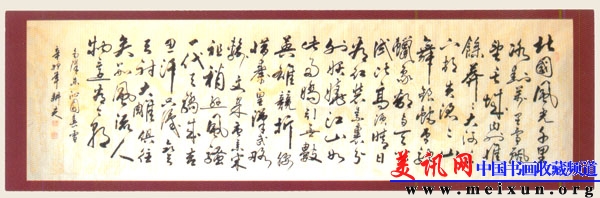 北國風光千里
冰封萬里雪飄
望長城內外惟
餘莽莽大河
下頓失滔滔山
舞銀蛇原馳
蠟象欲與天
試比高須晴日
看紅裝素裹分
外妖嬈江山如
此多嬌引無數
英雄競折腰
惜秦皇漢武略
輸文采唐宗宋
祖稍遜風騷
一代天驕成吉
思汗只識彎
弓射大雕俱往
矣數風流人
物還看今朝
毛澤東沁園春雪
年耕夫
美讯网
中国书画收藏频道
www.meixun.org